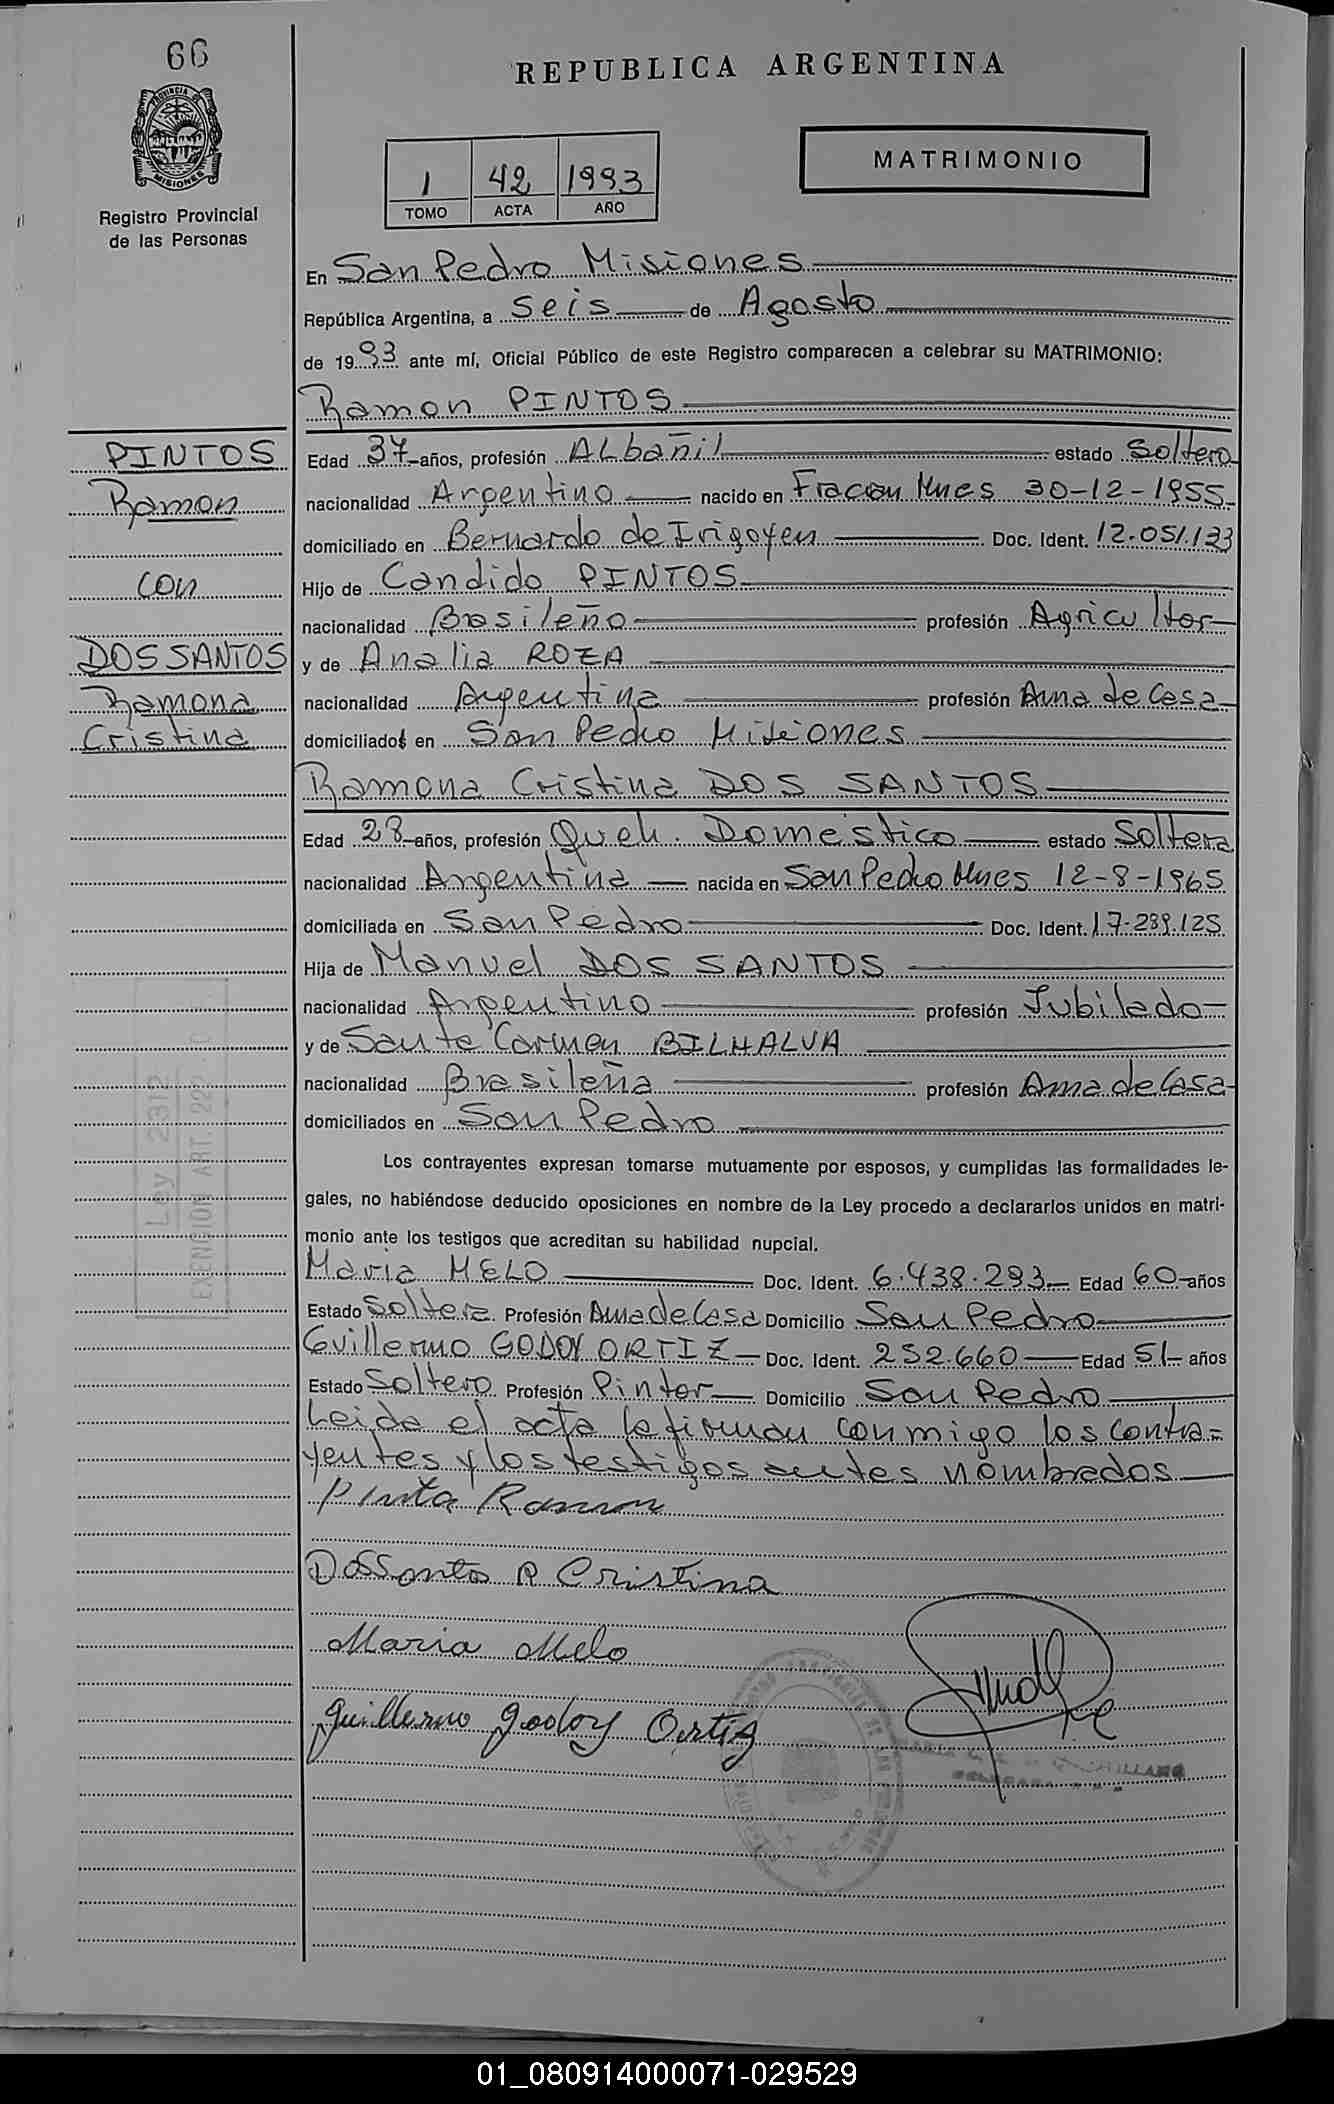 66
REPUBLICA ARGENTINA
PROVINCIA DE
MISIONES
Registro Provincial
de las Personas
1 42 1993
TOMO ACTA AÑO
MATRIMONIO
En San Pedro Misiones
República Argentina, a seis de Agosto
de 1993 ante mí, Oficial Público de este Registro comparecen a celebrar su MATRIMONIO:
Ramon PINTOS
PINTOS
Ramon
con
DOS SANTOS
Ramona
Cristina
Edad 37 años, profesión ALbañil estado Soltero
nacionalidad Argentino nacido en Fracran Mnes 30-12-1955
domiciliado en Bernardo de Irigoyen Doc. Ident. 12.051.133
Hijo de Candido PINTOS
nacionalidad Brasileño profesión Agricultor
y de Analia ROZA
nacionalidad Argentina profesión Ama de Casa
domiciliados en San Pedro Misiones
Ramona Cristina DOS SANTOS
Edad 28 años, profesión Queh. Doméstico estado Soltera
nacionalidad Argentina nacida en San Pedro Mnes 12-8-1965
domiciliada en San Pedro Doc. Ident. 17.239.125
Hija de Manuel DOS SANTOS
nacionalidad Argentino profesión Jubilado
y de Santa Carmen BILHALVA
nacionalidad Brasileña profesión Ama de Casa
domiciliados en San Pedro
Ley 2312
EXENCION ART. 222
Los contrayentes expresan tomarse mutuamente por esposos, y cumplidas las formalidades le-
gales, no habiéndose deducido oposiciones en nombre de la Ley procedo a declararlos unidos en matri-
monio ante los testigos que acreditan su habilidad nupcial.
Maria MELO Doc. Ident. 6.438.293 Edad 60 años
Estado Soltera Profesión Ama de Casa Domicilio San Pedro
Guillermo GODOY ORTIZ Doc. Ident. 252.660 Edad 51 años
Estado Soltero Profesión Pintor Domicilio San Pedro
Leida el acta la firman conmigo los contra=
yentes y los testigos antes nombrados
Pinto Ramon
Dos Santos R Cristina
Maria Melo
Guillermo Godoy Ortiz
01_080914000071-029529